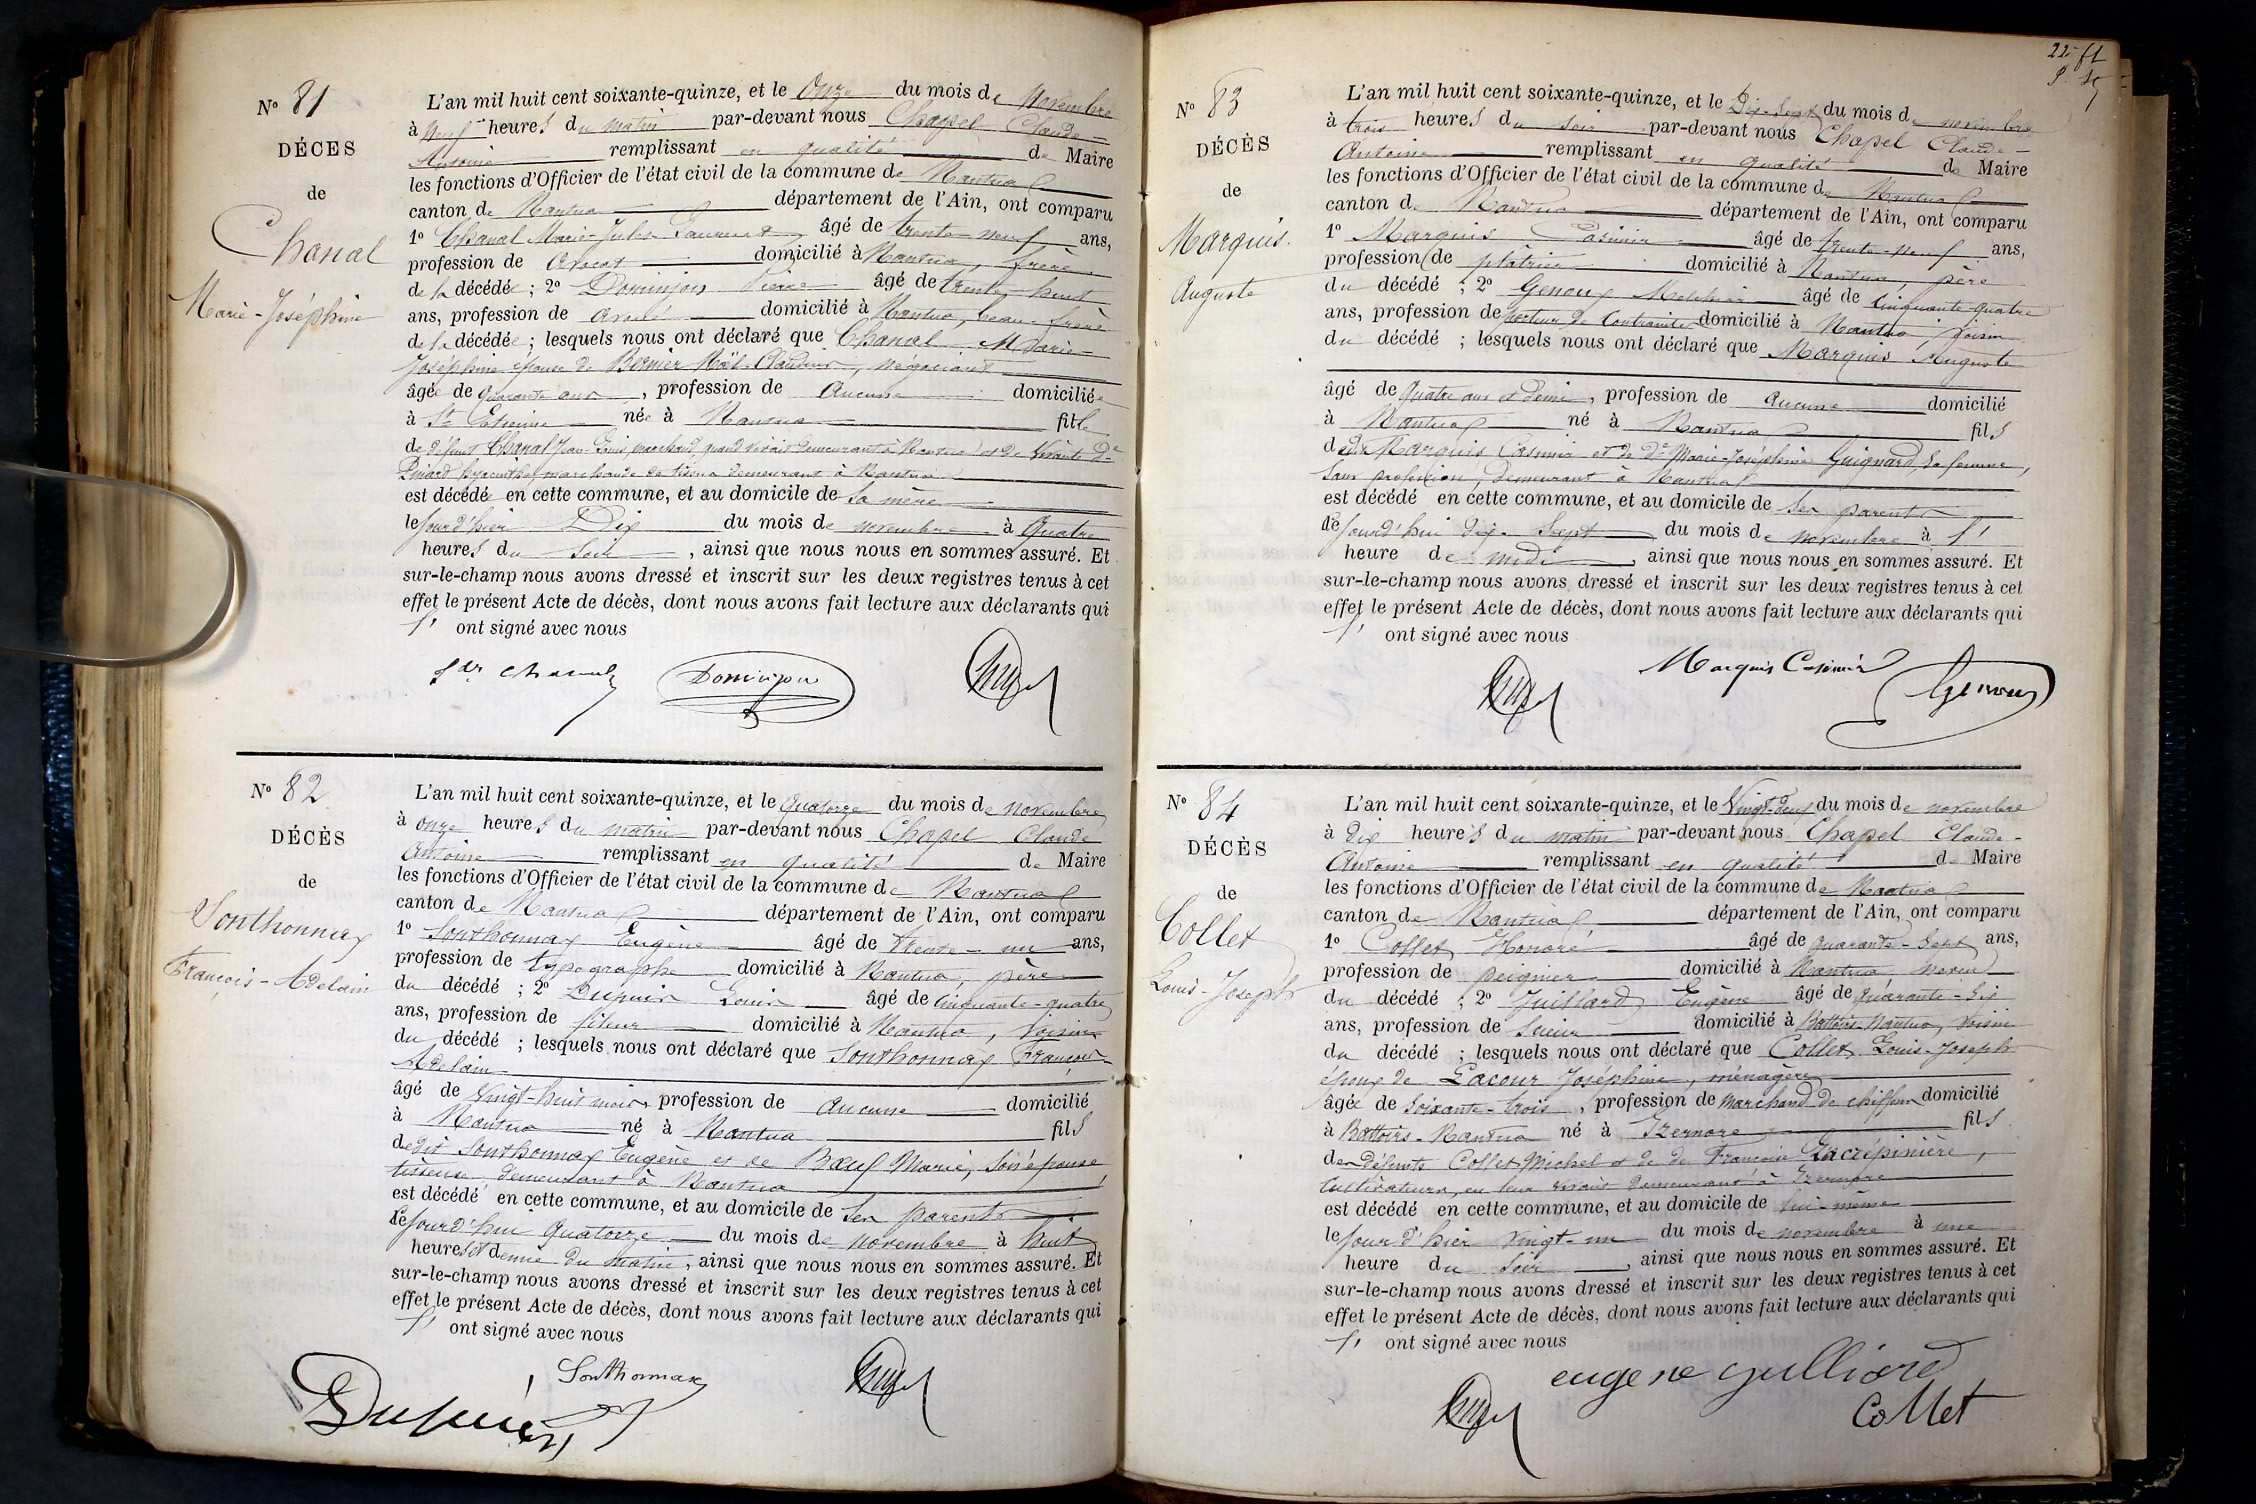 N° 81
DÉCES
de
Chanal
Marie-Joséphine
L'an mil huit cent soixante-quinze, et le Onze du mois de Novembre
à neuf heures du matin par-devant nous Chapel Claude-
Antoine remplissant en qualité de Maire
les fonctions d'Officier de l'état civil de la commune de Nantua
canton de Nantua département de l'Ain, ont comparu
1° Chanal Marie-Jules-Laurent âgé de trente-neuf ans,
profession de avocat domicilié à Nantua, frère
de la décédée ; 2° Dominjon Pierre âgé de trente-huit
ans, profession de avoué domicilié à Nantua, beau-frère
de la décédée ; lesquels nous ont déclaré que Chanal Marie-
Joséphine épouse de Bernier Noël-Claudius, négociant
âgée de quarante ans, profession de aucune domiciliée
à St Etienne née à Nantua fille
de défunt Chanal Jean-Louis, marchand, quand vivait demeurant à Nantua et de vivante De
Pinard hyacinthe marchande de tissus demeurant à Nantua
est décédé en cette commune, et au domicile de sa mère
le jour d'hier Dix du mois de novembre à quatre
heures du soir, ainsi que nous nous en sommes assuré. Et
sur-le-champ nous avons dressé et inscrit sur les deux registres tenus à cet
effet le présent Acte de décès, dont nous avons fait lecture aux déclarants qui
ont signé avec nous
Chanal Dominjon
N° 82
DÉCÈS
de
Sonthonnax
François-Adelain
L'an mil huit cent soixante-quinze, et le quatorze du mois de novembre
à onze heures du matin par-devant nous Chapel Claude
Antoine remplissant en qualité de Maire
les fonctions d'Officier de l'état civil de la commune de Nantua
canton de Nantua département de l'Ain, ont comparu
1° Sonthonnax Eugène âgé de trente-un ans,
profession de typographe domicilié à Nantua, père
du décédé ; 2° Dupuis Louis âgé de cinquante-quatre
ans, profession de fileur domicilié à Nantua, voisin
du décédé ; lesquels nous ont déclaré que Sonthonnax François
Adelain
âgé de vingt-huit mois, profession de aucune domicilié
à Nantua né à Nantua fils
de dit Sonthonnax Eugène et de Bœuf Marie, son épouse,
tisseuse demeurant à Nantua
est décédé en cette commune, et au domicile de ses parents
le jourd'hui quatorze du mois de novembre à huit
heures et demie du matin, ainsi que nous nous en sommes assuré. Et
sur-le-champ nous avons dressé et inscrit sur les deux registres tenus à cet
effet le présent Acte de décès, dont nous avons fait lecture aux déclarants qui
ont signé avec nous
Sonthonnax
N° 83
DÉCÈS
de
Marquis
Auguste
L'an mil huit cent soixante-quinze, et le Dix-Sept du mois de novembre
à trois heures du soir par-devant nous Chapel Claude-
Antoine remplissant en qualité de Maire
les fonctions d'Officier de l'état civil de la commune de Nantua
canton de Nantua département de l'Ain, ont comparu
1° Marquis Casimir âgé de trente-neuf ans,
profession de plâtrier domicilié à Nantua, père
du décédé ; 2° Genoux Melchior âgé de cinquante-quatre
ans, profession de porteur de Contrainte domicilié à Nantua, voisin
du décédé ; lesquels nous ont déclaré que Marquis Auguste
âgé de quatre ans et demi, profession de aucune domicilié
à Nantua né à Nantua fils
de dit Marquis Casimir et de De Marie-Joséphine Guignard, sa femme,
sans profession, demeurant à Nantua
est décédé en cette commune, et au domicile de ses parents
le jourd'hui dix-Sept du mois de novembre à
heure de midi, ainsi que nous nous en sommes assuré. Et
sur-le-champ nous avons dressé et inscrit sur les deux registres tenus à cet
effet le présent Acte de décès, dont nous avons fait lecture aux déclarants qui
ont signé avec nous
Marquis Casimir Genoux
N° 84
DÉCÈS
de
Collet
Louis-Joseph
L'an mil huit cent soixante-quinze, et le Vingt-deux du mois de novembre
à dix heures du matin par-devant nous Chapel Claude-
Antoine remplissant en qualité de Maire
les fonctions d'Officier de l'état civil de la commune de Nantua
canton de Nantua département de l'Ain, ont comparu
1° Collet Honoré âgé de quarante-sept ans,
profession de peignier domicilié à Nantua, neveu
du décédé ; 2° Juillard Eugène âgé de quarante-six
ans, profession de scieur domicilié à Battoirs-Nantua, voisin
du décédé ; lesquels nous ont déclaré que Collet Louis-Joseph
époux de Lacour Joséphine, ménagère
âgée de soixante-trois, profession de marchand de chiffons domicilié
à Battoirs-Nantua né à Izernore fils
des défunts Collet Michel et de de Françoise Lacrépinière,
cultivateurs, en leur vivant demeurant à Izernore
est décédé en cette commune, et au domicile de lui-même
le jour d'hier vingt-un du mois de novembre à une
heure du soir, ainsi que nous nous en sommes assuré. Et
sur-le-champ nous avons dressé et inscrit sur les deux registres tenus à cet
effet le présent Acte de décès, dont nous avons fait lecture aux déclarants qui
ont signé avec nous
eugene gulliard
Collet